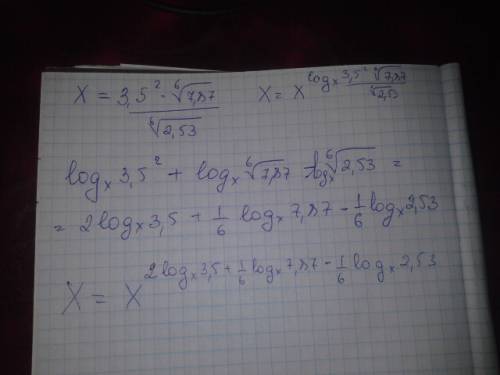 X = 3,5² · ⁶√7,87 / ⁶√2,53    X = X^(log_x 3,5² · ⁶√7,87 / ⁶√2,53)
log_x 3,5² + log_x ⁶√7,87 - log_x ⁶√2,53 =
= 2 log_x 3,5 + 1/6 log_x 7,87 - 1/6 log_x 2,53
X = X^(2 log_x 3,5 + 1/6 log_x 7,87 - 1/6 log_x 2,53)